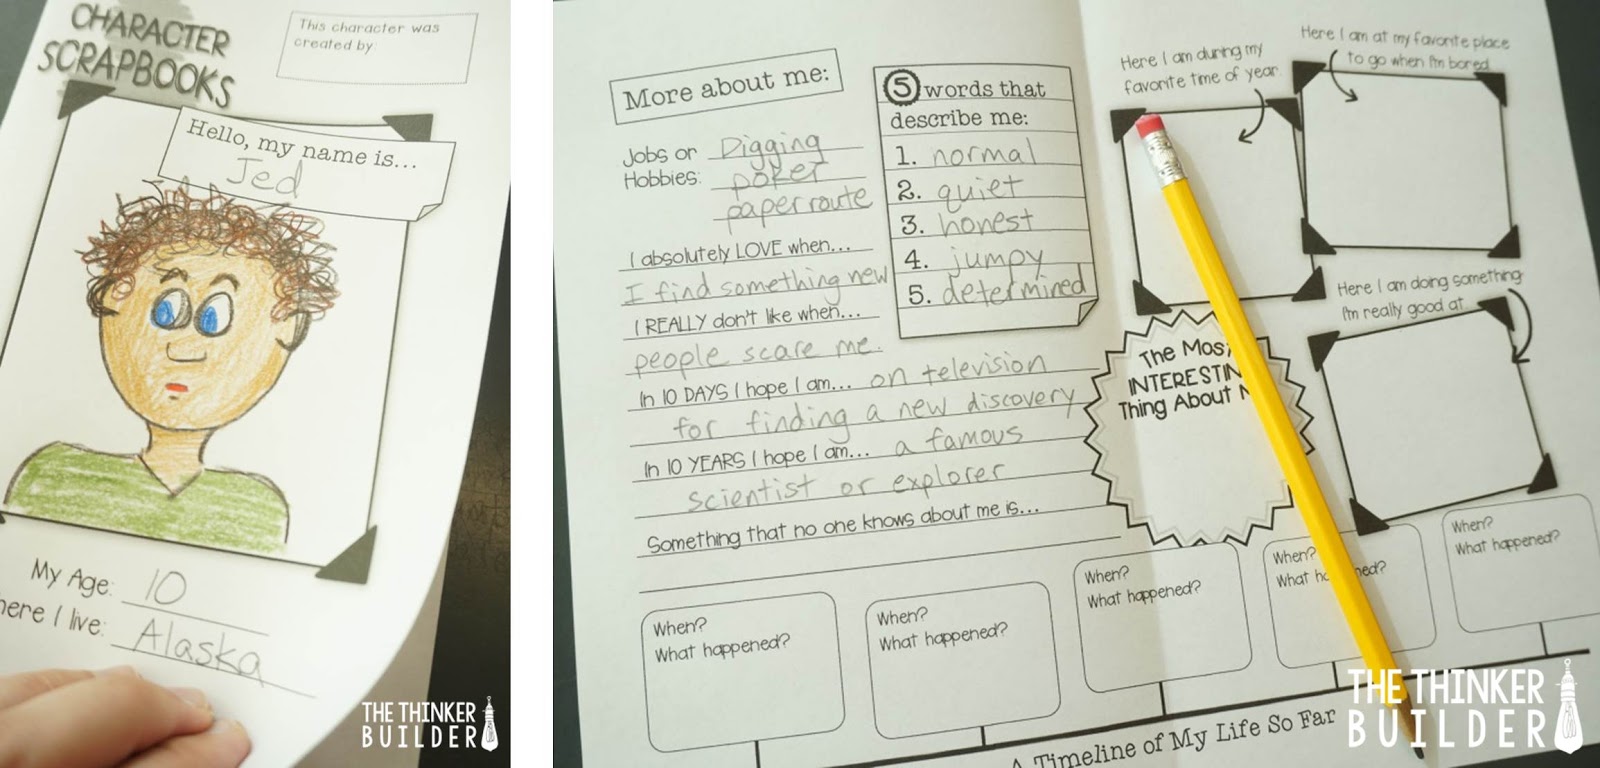 CHARACTER
SCRAPBOOKS
This character was
created by:
Hello, my name is...
Jed
My Age: 10
here I live: Alaska
THE THINKER
BUILDER
More about me:
Jobs or Digging
Hobbies: poker
paper route
I absolutely LOVE when...
I find something new
I REALLY don't like when...
people scare me.
In 10 DAYS I hope I am... on television
for finding a new discovery
In 10 YEARS I hope I am... a famous
scientist or explorer
Something that no one knows about me is...
5 words that
describe me:
1. normal
2. quiet
3. honest
4. jumpy
5. determined
Here I am during my
favorite time of year.
Here I am at my favorite place
to go when I'm bored.
Here I am doing something
I'm really good at...
The Mos
INTERESTIN
Thing About
When?
What happened?
When?
What happened?
When?
What happened?
When?
What ha ned?
When?
What happened?
A Timeline of My Life So Far
THE THINKER
BUILDER